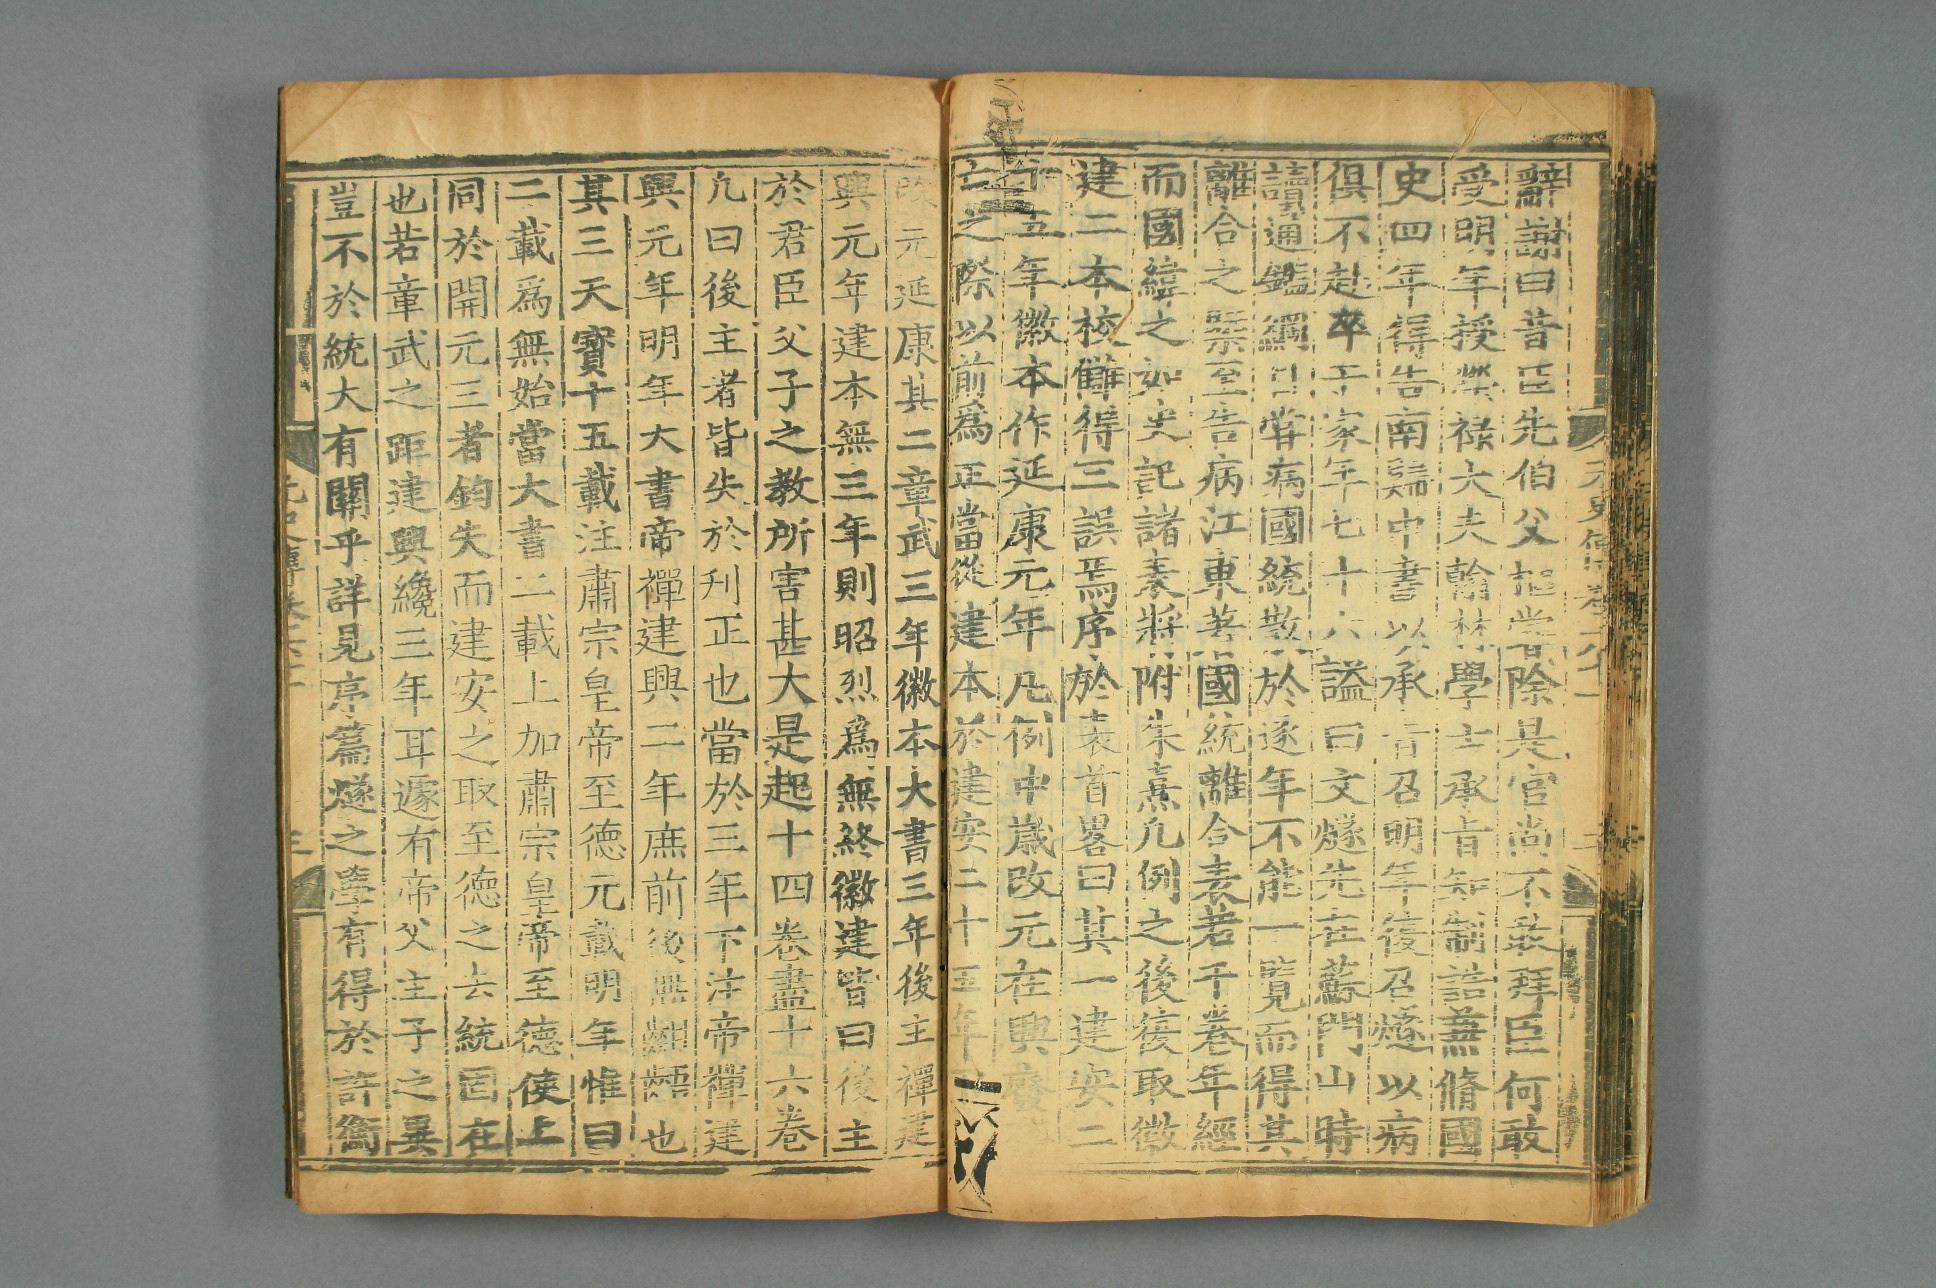 辭謝曰昔臣先伯父樞嘗除是官尚不敢拜臣何敢
受明年授榮祿大夫翰林學士承旨知制誥兼脩國
史四年得告南歸中書以承旨召明年復召燧以病
俱不赴卒于家年七十六諡曰文燧先在蘇門山時
讀通鑑綱目甞病國統散於逐年不能一覽而得其
離合之槩至告病江東著國統離合表若干卷年經
而國緯之如史記諸表將附朱熹凡例之後復取徽
建二本校讎得三誤焉序於表首畧曰其一建安二
十五年徽本作延康元年凡例中歲改元在興廢
亡之際以前爲正當從建本於建安二十五年下
改元延康其二章武三年徽本大書三年後主禪建
興元年建本無三年則昭烈爲無終徽建皆曰後主
於君臣父子之教所害甚大是起十四卷盡十六卷
凡曰後主者皆失於刋正也當於三年下注帝禪建
興元年明年大書帝禪建興二年庶前後無齟齬也
其三天寳十五載注肅宗皇帝至德元載明年惟曰
二載爲無始當大書二載上加肅宗皇帝至德使上
同於開元三者鈞失而建安之取至德之去統固在
也若章武之距建興纔三年耳遽有帝父主子之異
豈不於統大有關乎詳見序篇燧之學有得於許衡